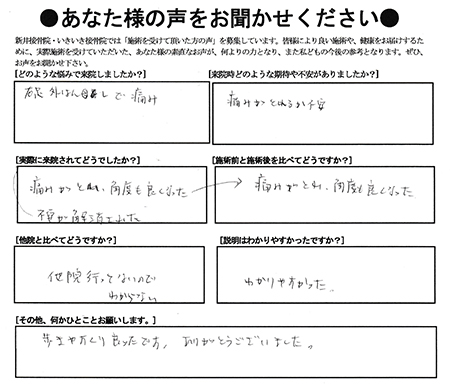 ●あなた様の声をお聞かせください●
新井接骨院・いきいき接骨院では「施術を受けて頂いた方の声」を募集しています。皆様により良い施術や、健康をお届けするため
に、実際施術を受けていただいた、あなた様の素直なお声が、何よりの力となり、また私どもの今後の参考となります。ぜひ、
お声をお聞かせ下さい。
[どのような悩みで来院しましたか?]
外はん母しで痛み
[来院時どのような期待や不安がありましたか?]
痛みがとれるか不安
[実際に来院されてどうでしたか?]
痛みがとれ、角度も良くなった
不安が解消された
[施術前と施術後を比べてどうですか?]
痛みがとれ、角度も良くなった
[他院と比べてどうですか?]
他院行ってないので
わからない
[説明はわかりやすかったですか?]
わかりやすかった
[その他、何かひとことお願いします。]
歩きやすくり良ったです。ありがとうございました。